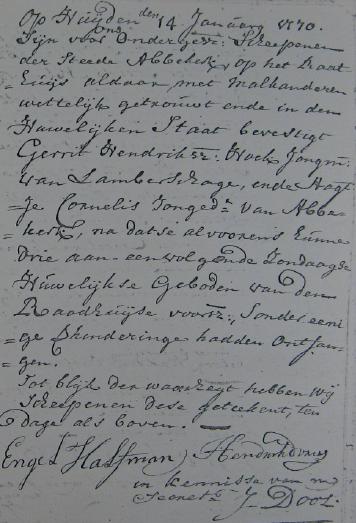 Op Huijden den 14 Januarij 1770.
Zijn voor ons ondergesz: Scheepenen
der Steede Abbekerk, op het Raat
=huijs aldaar, met malkanderen
wettelijk getrouwt ende in den
Huwelijken Staat bevestigt
Gerrit Hendriksz: Hoek Jongm:
van Lambertschage, ende Aagt
=Je Cornelis Jonged: van Abbe
=kerk, na datse alvoorens hunne
Drie aan-een volgende Zondaagse
Huwelijkse Geboden van den
Raadhuijse voorsz:, Sonder eeni
=ge Verhinderinge hadden ontfan
=gen.
Tot blijk der waarheijt hebben wij
Scheepenen dese geteekent, ten
Dage als boven. —
Engel Halfman,
in kennisse van mij
Secrets: J. Doot.